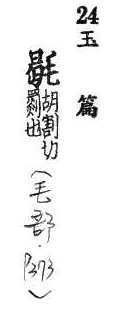 24
玉篇
毼胡割切
罽也
(毛部·P373)